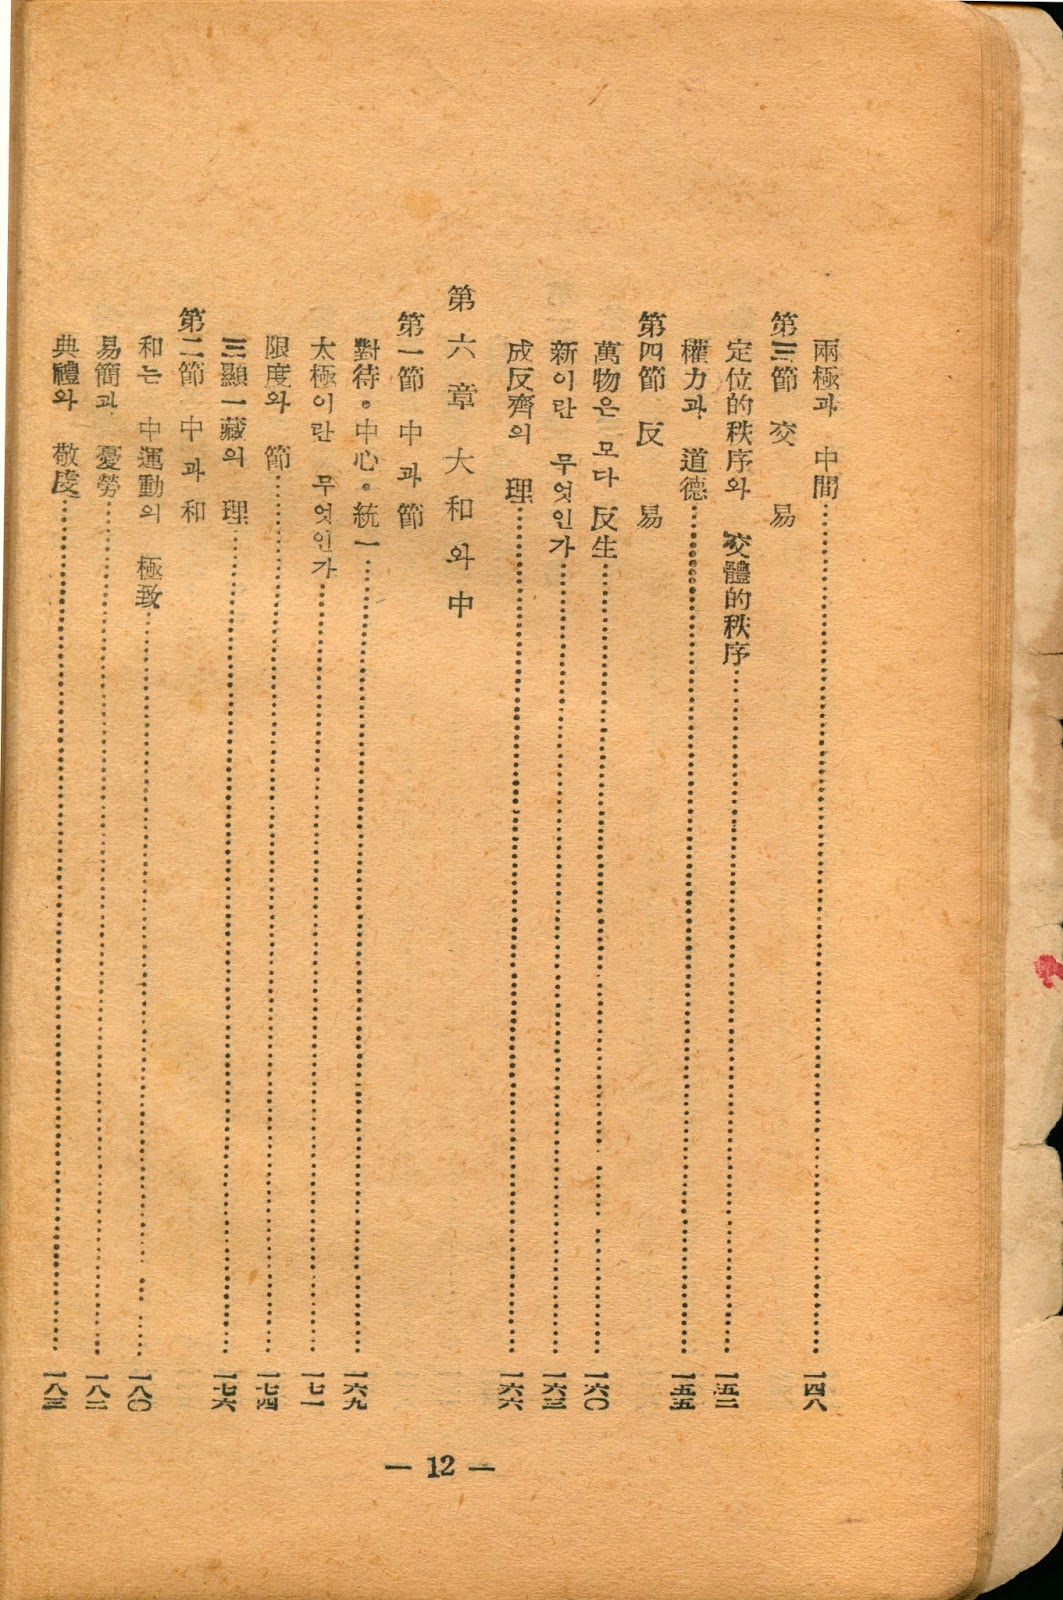 兩極과 中間……一四八
第三節 交易
定位的秩序와 交體的秩序……一五二
權力과 道德……一五五
第四節 反易
萬物은 모다 反生……一六〇
新이란 무엇인가……一六三
成反齊의 理……一六六
第六章 大和와 中
第一節 中과 節
對待。中心。統一……一六九
太極이란 무엇인가……一七一
限度와 節……一七四
三顯一藏의 理……一七六
第二節 中과 和
和는 中運動의 極致……一八〇
易簡과 憂勞……一八二
典禮와 敬虔……一八三
— 12 —